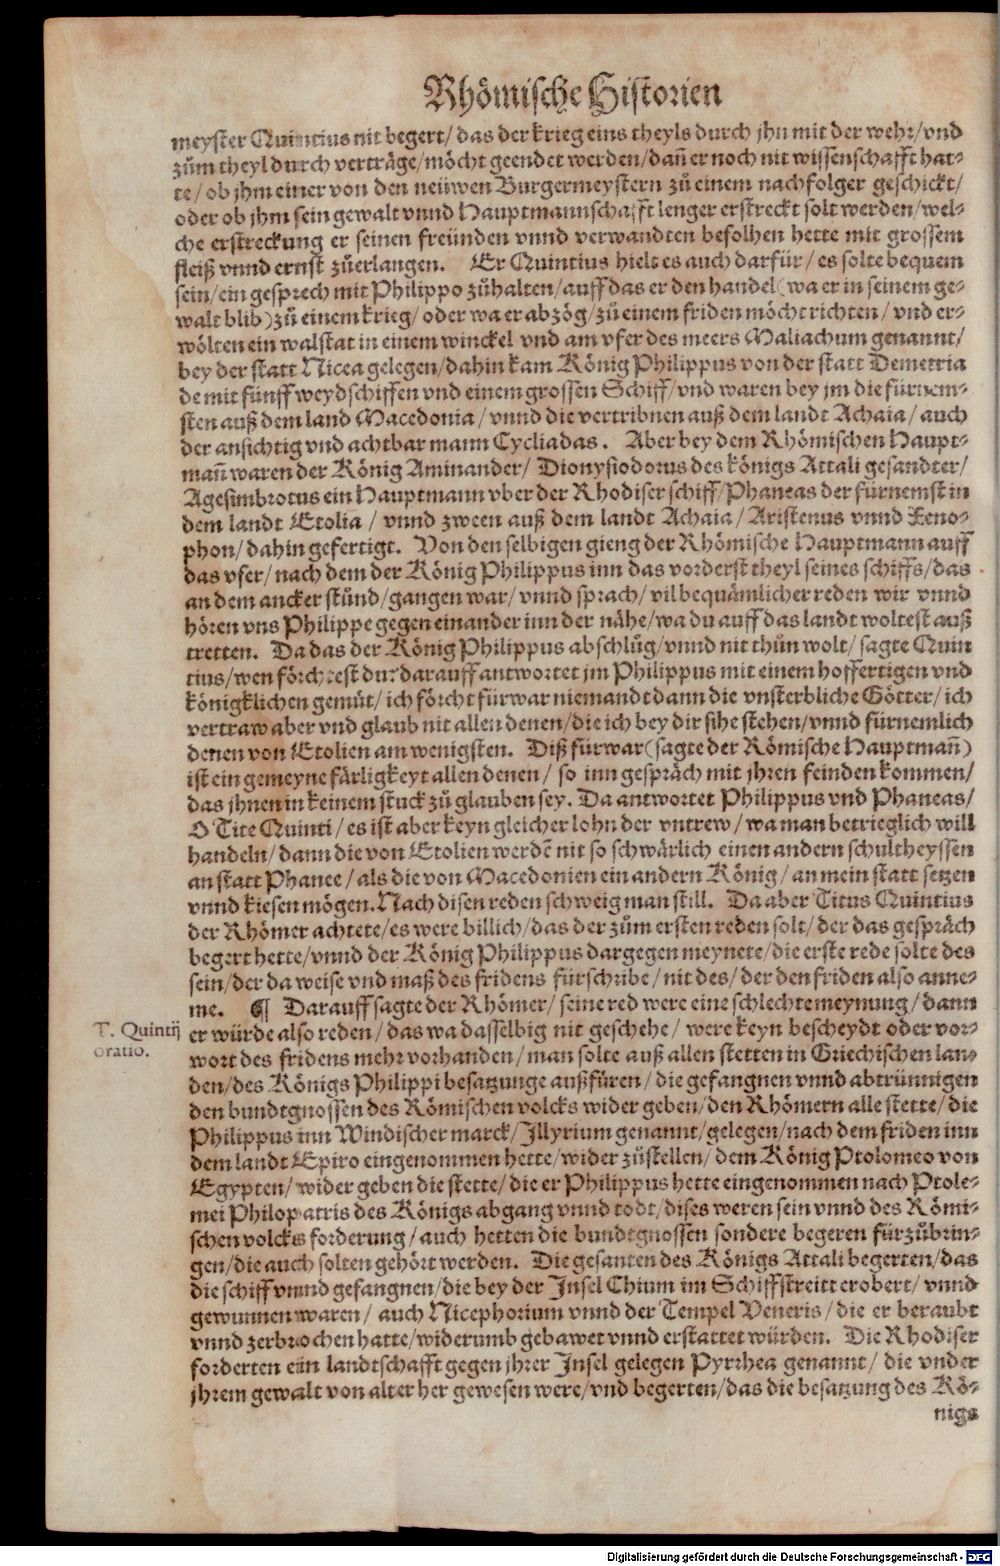 Rhömische Historien
meyster Quintius nit begert/ das der krieg eins theyls durch jhn mit der wehr/ vnd
zům theyl durch verträge/ möcht geendet werden/ dañ er noch nit wissenschafft hat-
te/ ob jhm einer von den neüwen Burgermeystern zů einem nachfolger geschickt/
oder ob jhm sein gewalt vnnd Hauptmannschafft lenger erstreckt solt werden/ wel-
che erstreckung er seinen freünden vnnd verwandten befolhen hette mit grossem
fleiß vnnd ernst zůerlangen. Er Quintius hielt es auch darfür/ es solte bequem
sein/ ein gesprech mit Philippo zůhalten/ auff das er den handel (wa er in seinem ge-
walt blib) zů einem krieg/ oder wa er abzög/ zů einem friden möcht richten/ vnd er-
wölten ein walstat in einem winckel vnd am vfer des meers Maliachum genannt/
bey der statt Nicea gelegen/ dahin kam König Philippus von der statt Demetria
de mit fünff weydschiffen vnd einem grossen Schiff/ vnd waren bey jm die fürnem-
sten auß dem land Macedonia/ vnnd die vertribnen auß dem landt Achaia/ auch
der ansichtig vnd achtbar mann Cycliadas. Aber bey dem Rhömischen Haupt-
mañ waren der König Aminander/ Dionysiodorus des königs Attali gesandter/
Agesimbrotus ein Hauptmann vber der Rhodiser schiff/ Phaneas der fürnemst in
dem landt Etolia/ vnnd zween auß dem landt Achaia/ Aristenus vnnd Xeno-
phon/ dahin gefertigt. Von den selbigen gieng der Rhömische Hauptmann auff
das vfer/ nach dem der König Philippus inn das vorderst theyl seines schiffs/ das
an dem ancker stůnd/ gangen war/ vnnd sprach/ vil bequämlicher reden wir vnnd
hören vns Philippe gegen einander inn der nähe/ wa du auff das landt woltest auß
tretten. Da das der König Philippus abschlůg/ vnnd nit thůn wolt/ sagte Quin
tius/ wen förchtest du? darauff antwortet jm Philippus mit einem hoffertigen vnd
königklichen gemüt/ ich förcht fürwar niemandt dann die vnsterbliche Götter/ ich
vertraw aber vnd glaub nit allen denen/ die ich bey dir sihe stehen/ vnnd fürnemlich
denen von Etolien am wenigsten. Diß fürwar (sagte der Römische Hauptmañ)
ist ein gemeyne färligkeyt allen denen/ so inn gespräch mit jhren feinden kommen/
das jhnen in keinem stuck zů glauben sey. Da antwortet Philippus vnd Phaneas/
O Tite Quinti/ es ist aber keyn gleicher lohn der vntrew/ wa man betrieglich will
handeln/ dann die von Etolien werdē nit so schwärlich einen andern schultheyssen
an statt Phanee/ als die von Macedonien ein andern König/ an mein statt setzen
vnnd kiesen mögen. Nach disen reden schweig man still. Da aber Titus Quintius
der Rhömer achtete/ es were billich/ das der zům ersten reden solt/ der das gespräch
begert hette/ vnnd der König Philippus dargegen meynete/ die erste rede solte des
sein/ der da weise vnd maß des fridens fürschribe/ nit des/ der den friden also anne-
me. ¶ Darauff sagte der Rhömer/ seine red were eine schlechte meynung/ dann
T. Quintij
oratio.
er würde also reden/ das wa dasselbig nit geschehe/ were keyn bescheydt oder vor-
wort des fridens mehr vorhanden/ man solte auß allen stetten in Griechischen lan-
den/ des Königs Philippi besatzunge außfüren/ die gefangnen vnnd abtrünnigen
den bundtgnossen des Römischen volcks wider geben/ den Rhömern alle stette/ die
Philippus inn Windischer marck/ Illyrium genannt/ gelegen/ nach dem friden inn
dem landt Epiro eingenommen hette/ wider zůstellen/ dem König Ptolomeo von
Egypten/ wider geben die stette/ die er Philippus hette eingenommen nach Ptole-
mei Philopatris des Königs abgang vnnd todt/ dises weren sein vnnd des Römi-
schen volcks forderung/ auch hetten die bundtgnossen sondere begeren fürzůbrin-
gen/ die auch solten gehört werden. Die gesanten des Königs Attali begerten/ das
die schiff vnnd gefangnen/ die bey der Insel Chium im Schiffstreitt erobert/ vnnd
gewunnen waren/ auch Nicephorium vnnd der Tempel Veneris/ die er beraubt
vnnd zerbrochen hatte/ widerumb gebawet vnnd erstattet würden. Die Rhodiser
forderten ein landtschafft gegen jhrer Insel gelegen Pyrrhea genannt/ die vnder
jhrem gewalt von alter her gewesen were/ vnd begerten/ das die besatzung des Kö-
nigs
Digitalisierung gefördert durch die Deutsche Forschungsgemeinschaft - DFG